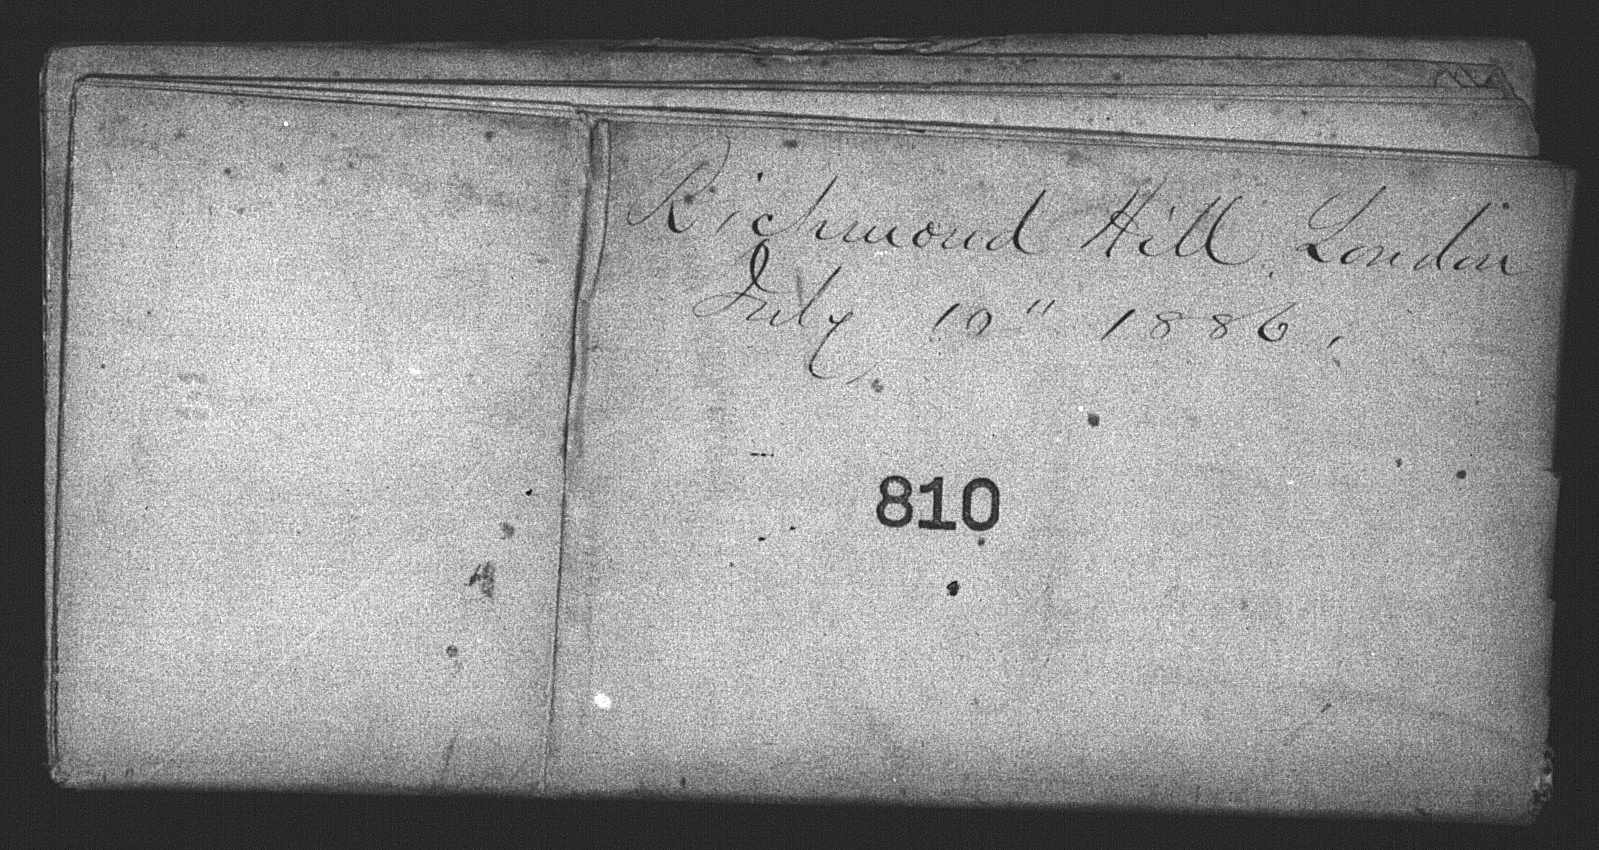 Richmond Hill, London
July 10" 1886,
810